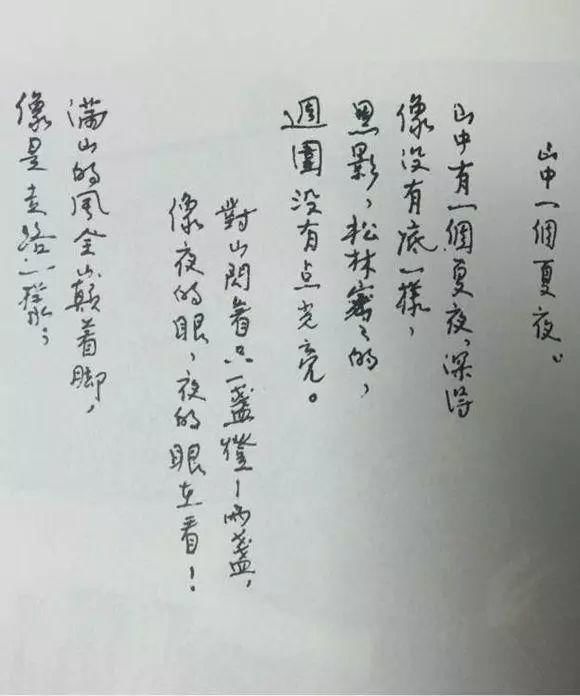 山中一個夏夜。
山中有一個夏夜，深得
像没有底一樣，
黑影，松林密〻的，
週圍没有点光亮。
對山閃着只一盞燈—兩盞，
像夜的眼，夜的眼在看！
滿山的風全山顛着脚，
像是走路一樣；